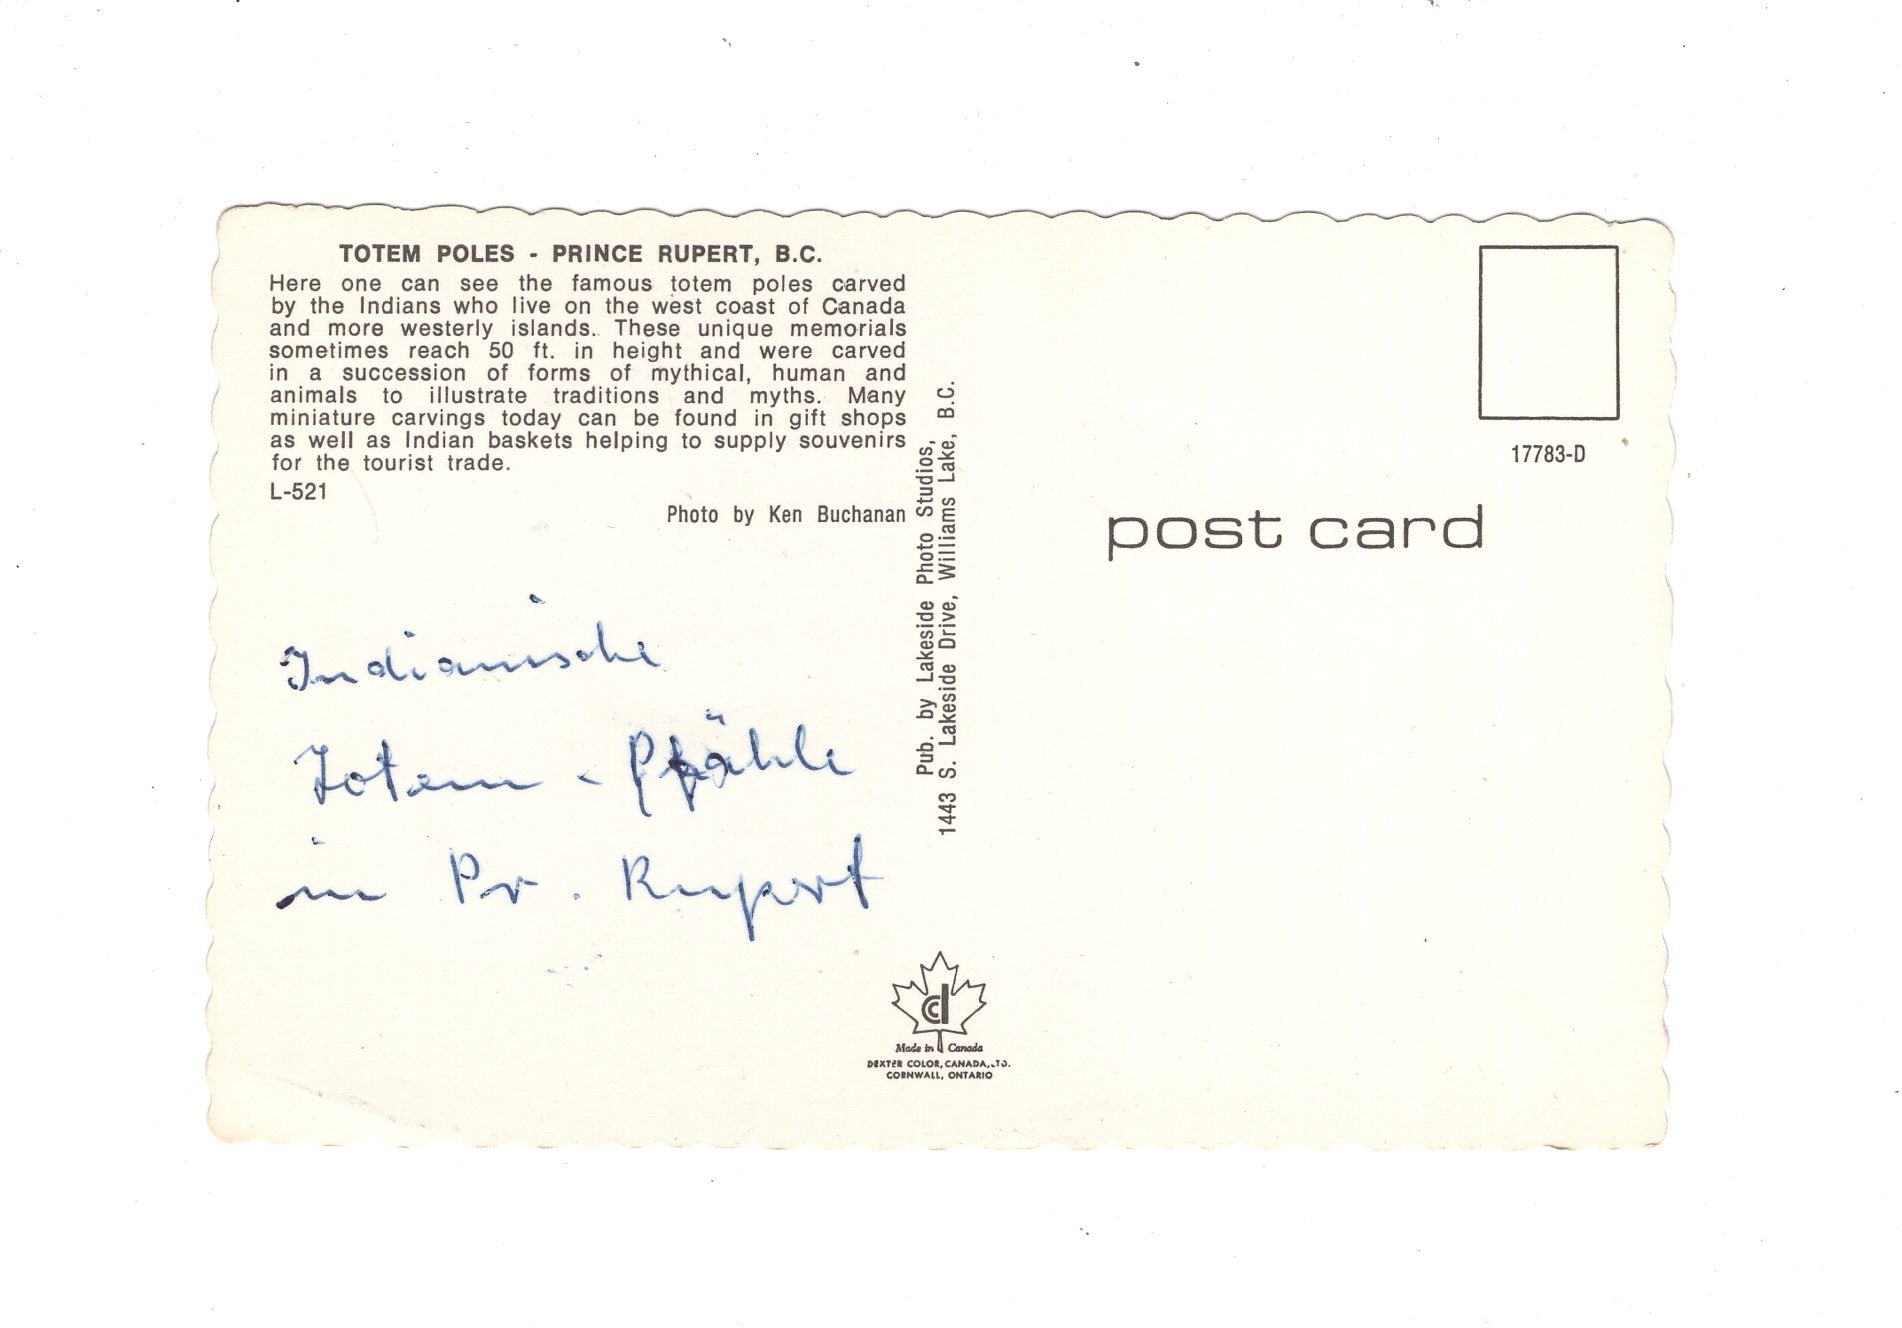 TOTEM POLES - PRINCE RUPERT, B.C.
Here one can see the famous totem poles carved
by the Indians who live on the west coast of Canada
and more westerly islands. These unique memorials
sometimes reach 50 ft. in height and were carved
in a succession of forms of mythical, human and
animals to illustrate traditions and myths. Many
miniature carvings today can be found in gift shops
as well as Indian baskets helping to supply souvenirs
for the tourist trade.
L-521
Photo by Ken Buchanan
Indianische
Totem - Pfähle
in Pr. Rupert
Pub. by Lakeside Photo Studios,
1443 S. Lakeside Drive, Williams Lake, B.C.
cd
Made in Canada
DEXTER COLOR, CANADA, LTD.
CORNWALL, ONTARIO
17783-D
post card